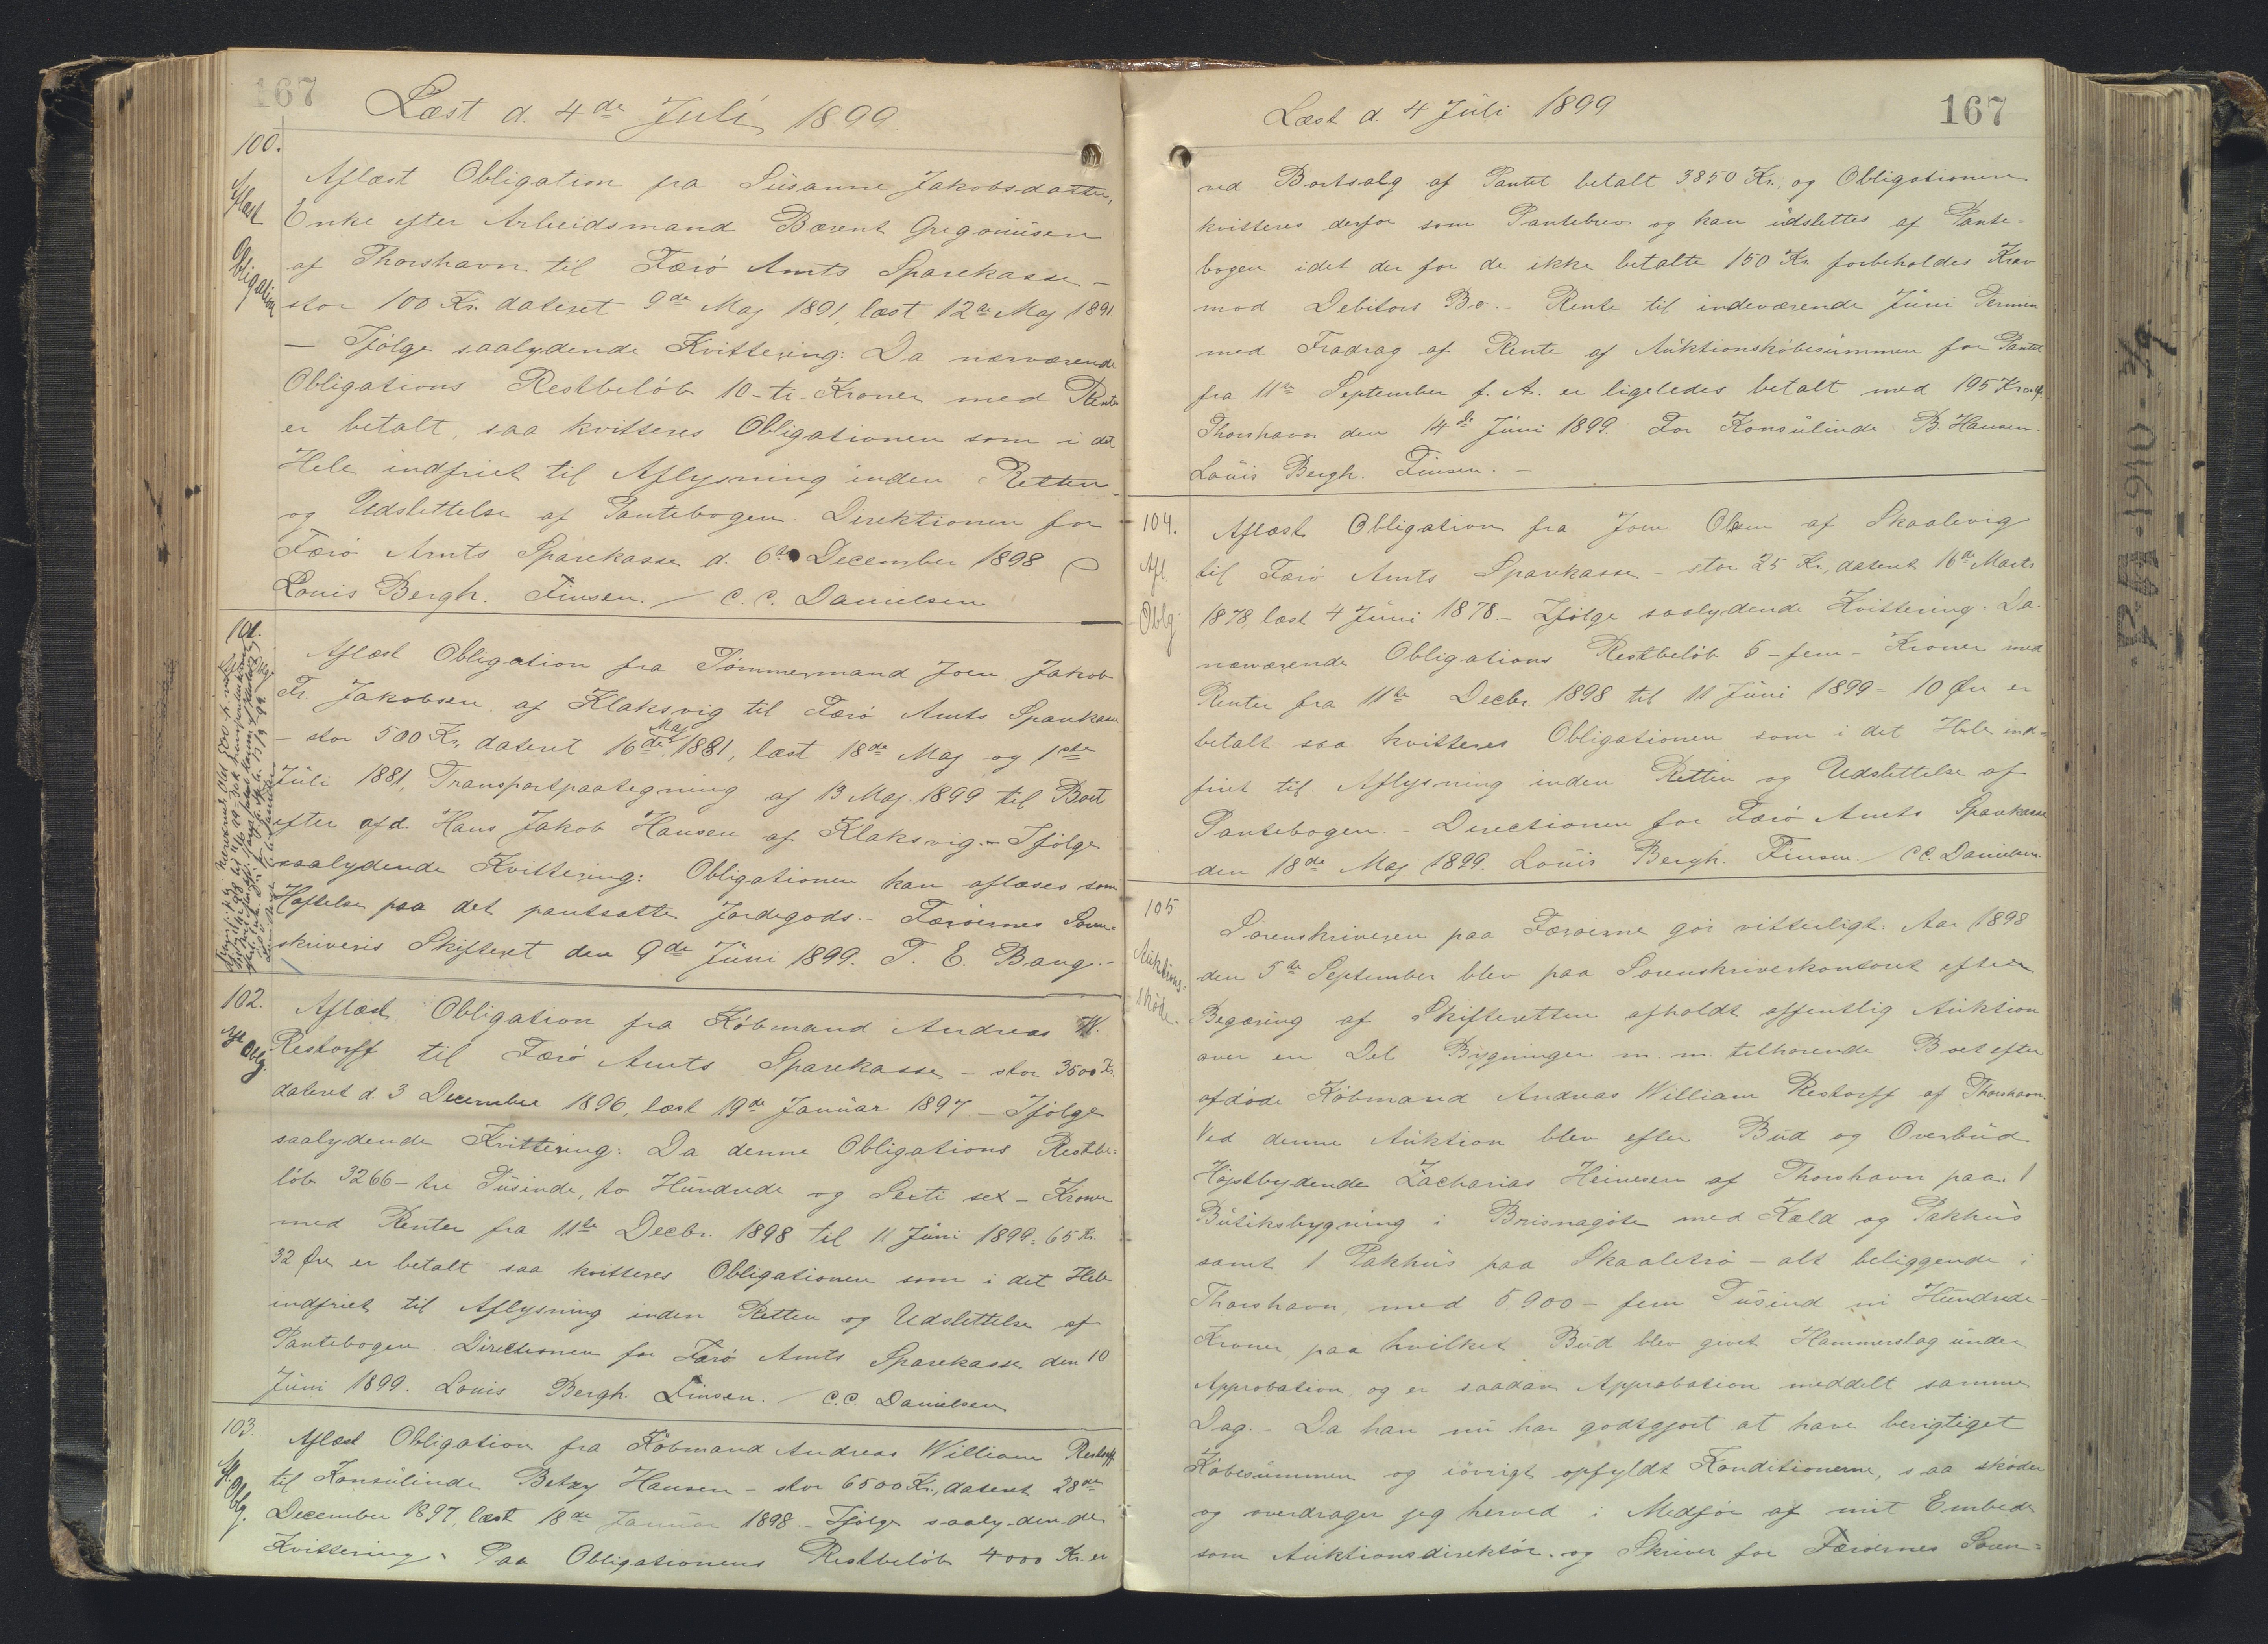 167
Læst d. 4de Juli 1899
100.
Aflæst
Obligation
Aflæst Obligation fra Susanne Jakobsdatter,
Enke efter Arbeidsmand Bærent Gregoriusen
af Thorshavn til Færø Amts Sparekasse -
stor 100 Kr. dateret 9de Maj 1891, læst 12te Maj 1891
- Ifølge saalydende Kvittering: Da nærværende
Obligations Restbeløb 10-ti-Kroner med Renter
er betalt, saa kvitteres Obligationen som i det
Hele indfriet til Aflysning inden Retten
og Udslettelse af Pantebogen. Direktionen for
Færø Amts Sparekasse d. 6te December 1898
Louis Bergh. Finsen. / C. C. Danielsen
101.
Aflæst Obligation fra Tømmermand Joen Jakob
Fr. Jakobsen af Klaksvig til Færø Amts Sparekasse
- stor 500 Kr. dateret 16de Maj 1881, læst 18de Maj og 1ste
Juli 1881, Transportpaategning af 13 Maj 1899 til Boet
efter afd. Hans Jakob Hansen af Klaksvig. - Ifølge
saalydende Kvittering: Obligationen kan aflæses som
Hæftelse paa det pantsatte Jordegods. - Færøernes Soren-
skriveris Skifteret den 9de Juni 1899. T. E. Bang. -
102.
Afl. Oblg.
Aflæst Obligation fra Købmand Andreas W.
Restorff til Færø Amts Sparekasse - stor 3500 Kr.
dateret d. 3 December 1896, læst 19de Januar 1897 - Ifølge
saalydende Kvittering: Da denne Obligations Restbe-
løb 3266 - tre Tusinde, to Hundrede og Sexti sex - Kroner
med Renter fra 11te Decbr. 1898 til 11 Juni 1899 = 65 Kr.
32 Øre er betalt saa kvitteres Obligationen som i det Hele
indfriet til Aflysning inden Retten og Udslettelse af
Pantebogen. Directionen for Færø Amts Sparekasse den 10
Juni 1899. Louis Bergh. Finsen. / C.C. Danielsen
103.
Afl. Oblg.
Aflæst Obligation fra Købmand Andreas William Restorff
til Konsulinde Betzy Hansen - stor 6500 Kr., dateret 28de
December 1897, læst 18de Januar 1898. - Ifølge saalydende
Kvittering: Paa Obligationens Restbeløb 4000 Kr. er
167
Læst d. 4 Juli 1899
ved Bortsalg af Pantet betalt 3850 Kr. og Obligationen
kvitteres derfor som Pantebrev og kan udslettes af Pante-
bogen idet der for de ikke betalte 150 Kr. forbeholdes Krav
mod Debitors Bo. - Rente til indeværende Juni Termin
med Fradrag af Rente af Auktionskøbesummen for Pantet
fra 11te September f. A. er ligeledes betalt med 195 Kroner
Thorshavn den 14de Juni 1899. For Konsulinde B. Hansen.
Louis Bergh. Finsen. -
104.
Afl.
Oblg.
Aflæst Obligation fra Joen Olsen af Skaalevig
til Færø Amts Sparekasse - stor 25 Kr., dateret 16de Marts
1878, læst 4 Juni 1878. - Ifølge saalydende Kvittering: Da
nærværende Obligations Restbeløb 5 - fem - Kroner med
Renter fra 11te Decbr. 1898 til 11 Juni 1899 = 10 Øre er
betalt saa kvitteres Obligationen som i det Hele ind-
friet til Aflysning inden Retten og Udslettelse af
Pantebogen. - Directionen for Færø Amts Sparekasse
den 18de Maj 1899. Louis Bergh. Finsen. / C.C. Danielsen.
105
Auktions-
skøde.
Sorenskriveren paa Færøerne gør vitterligt: Aar 1898
den 5te September blev paa Sorenskriverkontoret efter
Begæring af Skifteretten afholdt offentlig Auktion
over en Del Bygninger m. m. tilhørende Boet efter
afdøde Købmand Andreas William Restorff af Thorshavn.
Ved denne Auktion blev efter Bud og Overbud
Højstbydende Zacharias Heinesen af Thorshavn paa 1
Butiksbygning i Bringnagøte med Kæld og Pakhus
samt 1 Pakhus paa Skaaletrø - alt beliggende i
Thorshavn, med 5.900 - fem Tusind ni Hundrede -
Kroner, paa hvilket Bud blev givet Hammerslag under
Approbation, og er saadan Approbation meddelt samme
Dag. - Da han nu har godtgjort at have berigtiget
Købesummen og iøvrigt opfyldt Konditionerne, saa skøder
og overdrager jeg herved i Medfør af mit Embede
som Auktionsdirektør og Skriver for Færøernes Soren-